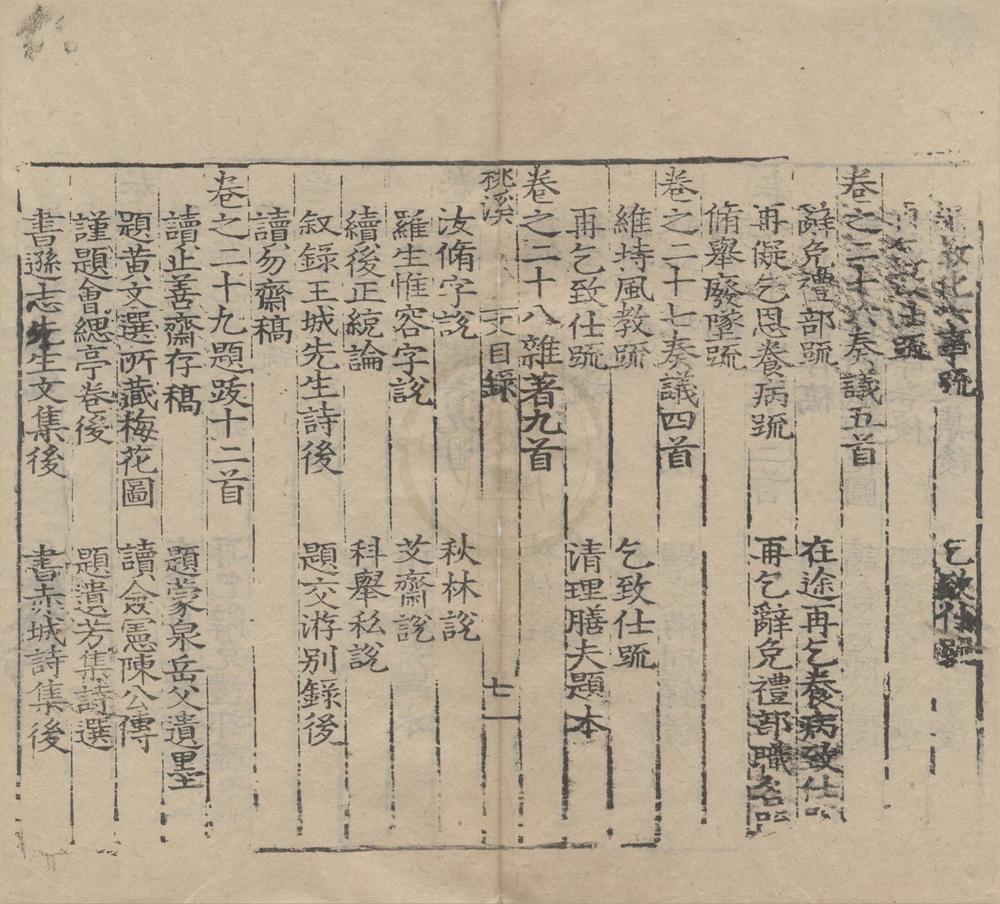 教化六事疏　乞致仕疏
致仕疏
卷之二十六奏議五首
辭免禮部疏　在途再乞養病致仕
再儗乞恩養病疏　再乞辭免禮部職名
脩舉廢墜疏
卷之二十七奏議四首
維持風教疏　乞致仕疏
再乞致仕疏　清理膳夫題本
卷之二十八雜著九首
桃溪　文目錄　七一
汝脩字說　秋林說
羅生惟容字說　艾齋說
續後正統論　科舉私說
叙錄王城先生詩後　題交游別錄後
讀勿齋稿
卷之二十九題跋十二首
讀止善齋存稿　題蒙泉岳父遺墨
題黃文選所藏梅花圖　讀僉憲陳公傳
謹題會緦亭卷後　題遺芳集詩選
書遜志先生文集後　書赤城詩集後